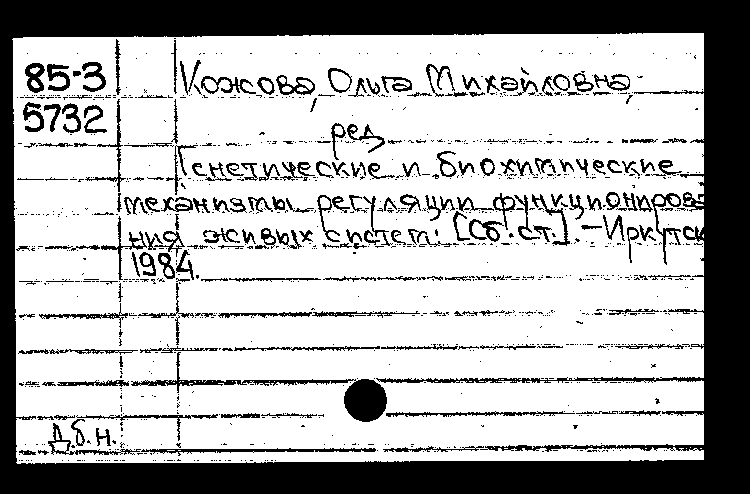 85-3 Кожова, Ольга Михайловна,
5732
ред.
Генетические и биохимические
механизмы регуляции функционирова
ния живых систем: [Сб. ст.]. - Иркутск
1984.
Д.б.н.